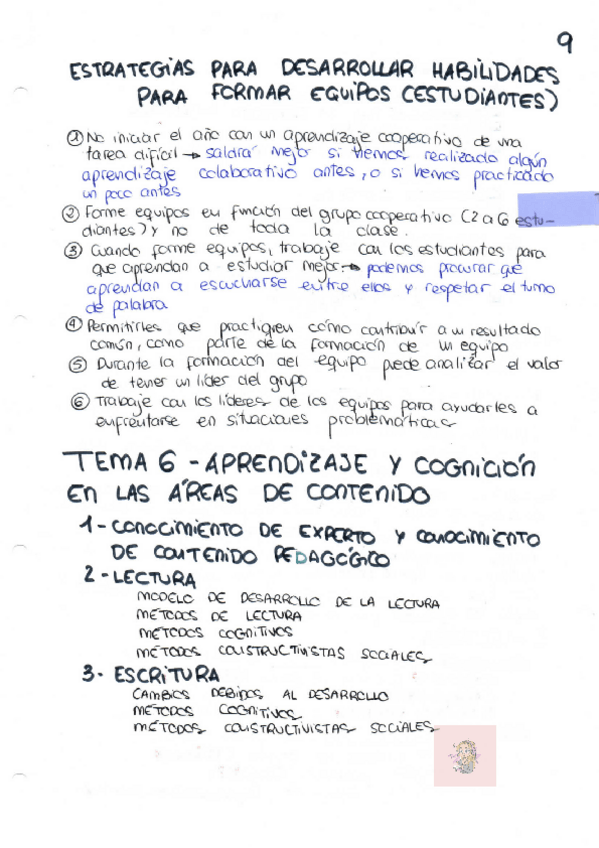 9
ESTRATEGIAS PARA DESARROLLAR HABILIDADES
PARA FORMAR EQUIPOS (ESTUDIANTES)
① No iniciar el año con un aprendizaje cooperativo de una
tarea difícil → saldrá mejor si hemos realizado algún
aprendizaje colaborativo antes, o si hemos practicado
un poco antes
② Forme equipos en función del grupo cooperativo (2 a 6 estu-
diantes) y no de toda la clase.
③ Cuando forme equipos, trabaje con los estudiantes para
que aprendan a estudiar mejor → podemos procurar que
aprendan a escucharse entre ellos y respetar el turno
de palabra
④ Permitirles que practiquen cómo contribuir a un resultado
común, como parte de la formación de un equipo
⑤ Durante la formación del equipo puede analizar el valor
de tener un líder del grupo
⑥ Trabaje con los líderes de los equipos para ayudarles a
enfrentarse en situaciones problemáticas
TEMA 6 - APRENDIZAJE Y COGNICIÓN
EN LAS ÁREAS DE CONTENIDO
1- CONOCIMIENTO DE EXPERTO Y CONOCIMIENTO
DE CONTENIDO PEDAGÓGICO
2- LECTURA
MODELO DE DESARROLLO DE LA LECTURA
MÉTODOS DE LECTURA
MÉTODOS COGNITIVOS
MÉTODOS CONSTRUCTIVISTAS SOCIALES
3- ESCRITURA
CAMBIOS DEBIDOS AL DESARROLLO
MÉTODOS COGNITIVOS
MÉTODOS CONSTRUCTIVISTAS SOCIALES